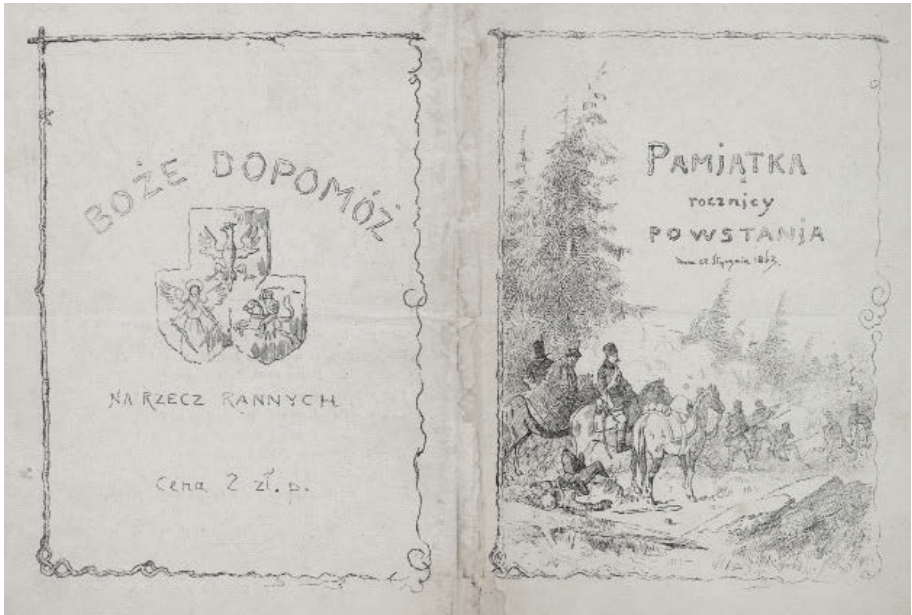 BOŻE DOPOMÓŻ
NA RZECZ RANNYCH
Cena 2 zł. p.
PAMJĄTKA
rocznjcy
POWSTANJA
Stycznia 1863.